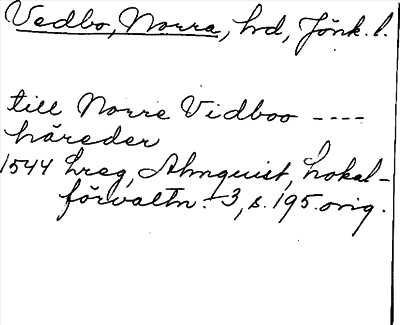 Vedbo, Norra, hd, Jönk. l.
till Norre Vidboo ----
häreder
1544 hreg, Almquist, Lokal-
förvaltn. 3, s. 195. orig.